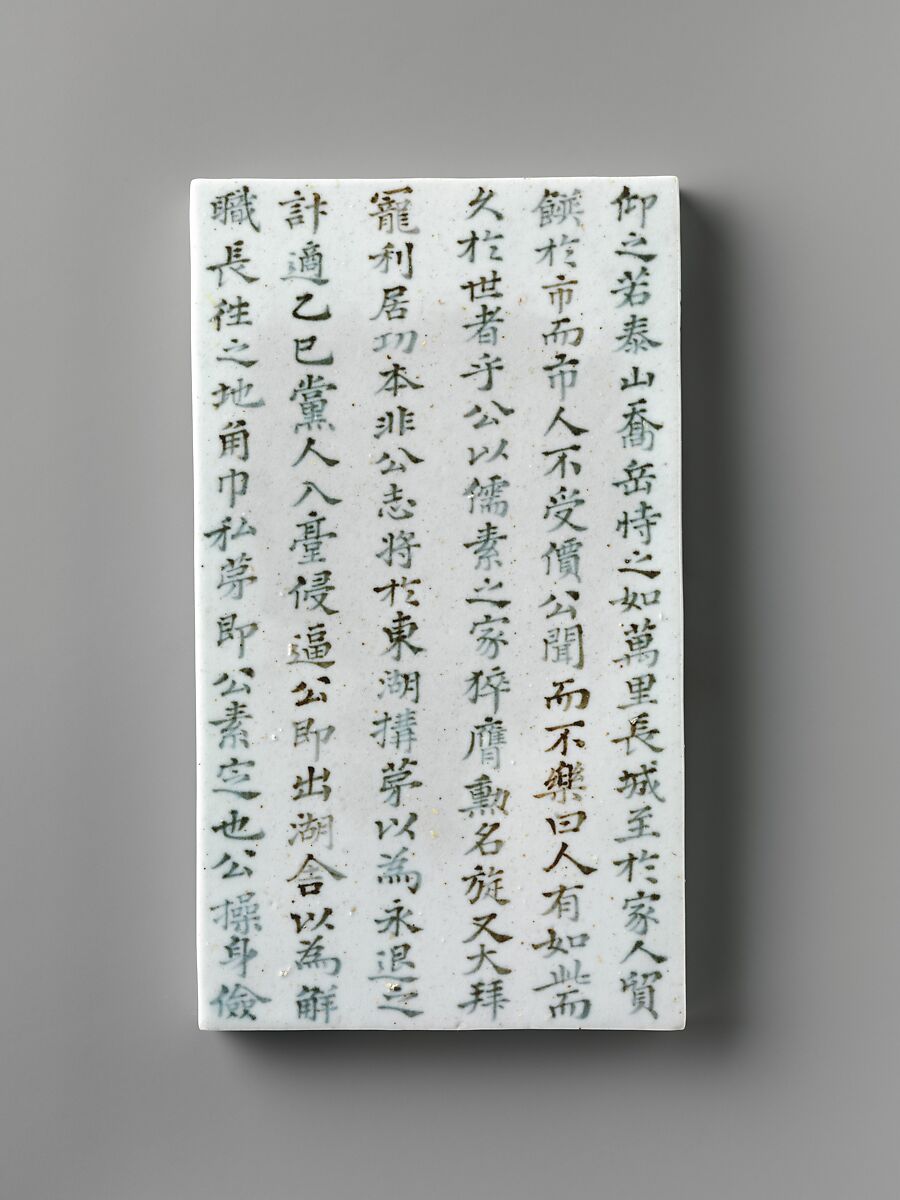 仰之若泰山喬岳恃之如萬里長城至於家人貿
饌於市而市人不受價公聞而不樂曰人有如此而
久於世者乎公以儒素之家猝膺勳名旋又大拜
寵利居功本非公志將於東湖搆茅以為永退之
計適乙巳黨人入臺侵逼公即出湖舍以為觧
職長徃之地角巾私茅即公素定也公操身儉